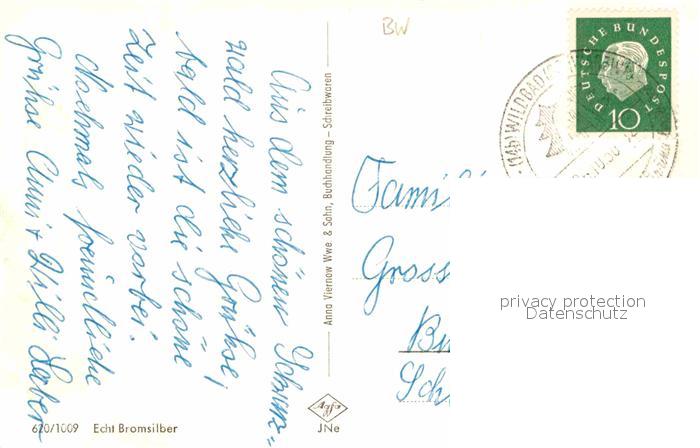 BW
Aus dem schönen Schwarz=
wald herzliche Grüße,
bald ist die schöne
Zeit wieder vorbei.
Nochmals freundliche
Grüße Anni + Willi
Anna Viernow Wwe. & Sohn, Buchhandlung – Schreibwaren
DEUTSCHE BUNDESPOST
10
(14b) WILDBAD
Fami
Gross
Schw
privacy protection
Datenschutz
Agfa
JNe
620/1009 Echt Bromsilber